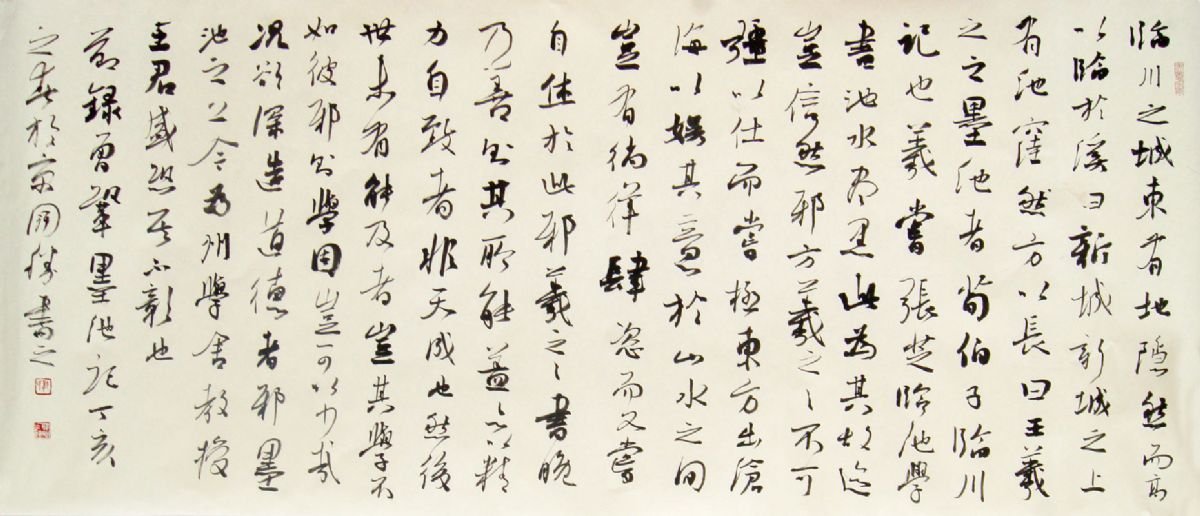 臨川之城東有地隱然而高
以臨於溪曰新城新城之上
有池窪然方以長曰王羲
之之墨池者荀伯子臨川
記也羲嘗張芝臨池學
書池水盡黑此為其故迹
豈信然邪方羲之之不可
彊以仕而嘗極東方出滄
海以娛其意於山水之間
豈有徜徉肆恣而又嘗
自休於此邪羲之之書晚
乃善則其所能蓋亦以精
力自致者非天成也然後
世未有能及者豈其學不
如彼邪則學固豈可以少哉
況欲深造道德者邪墨
池之上今為州學舍教授
王君盛恐其不彰也
節錄曾鞏墨池記丁亥
之春於京書之